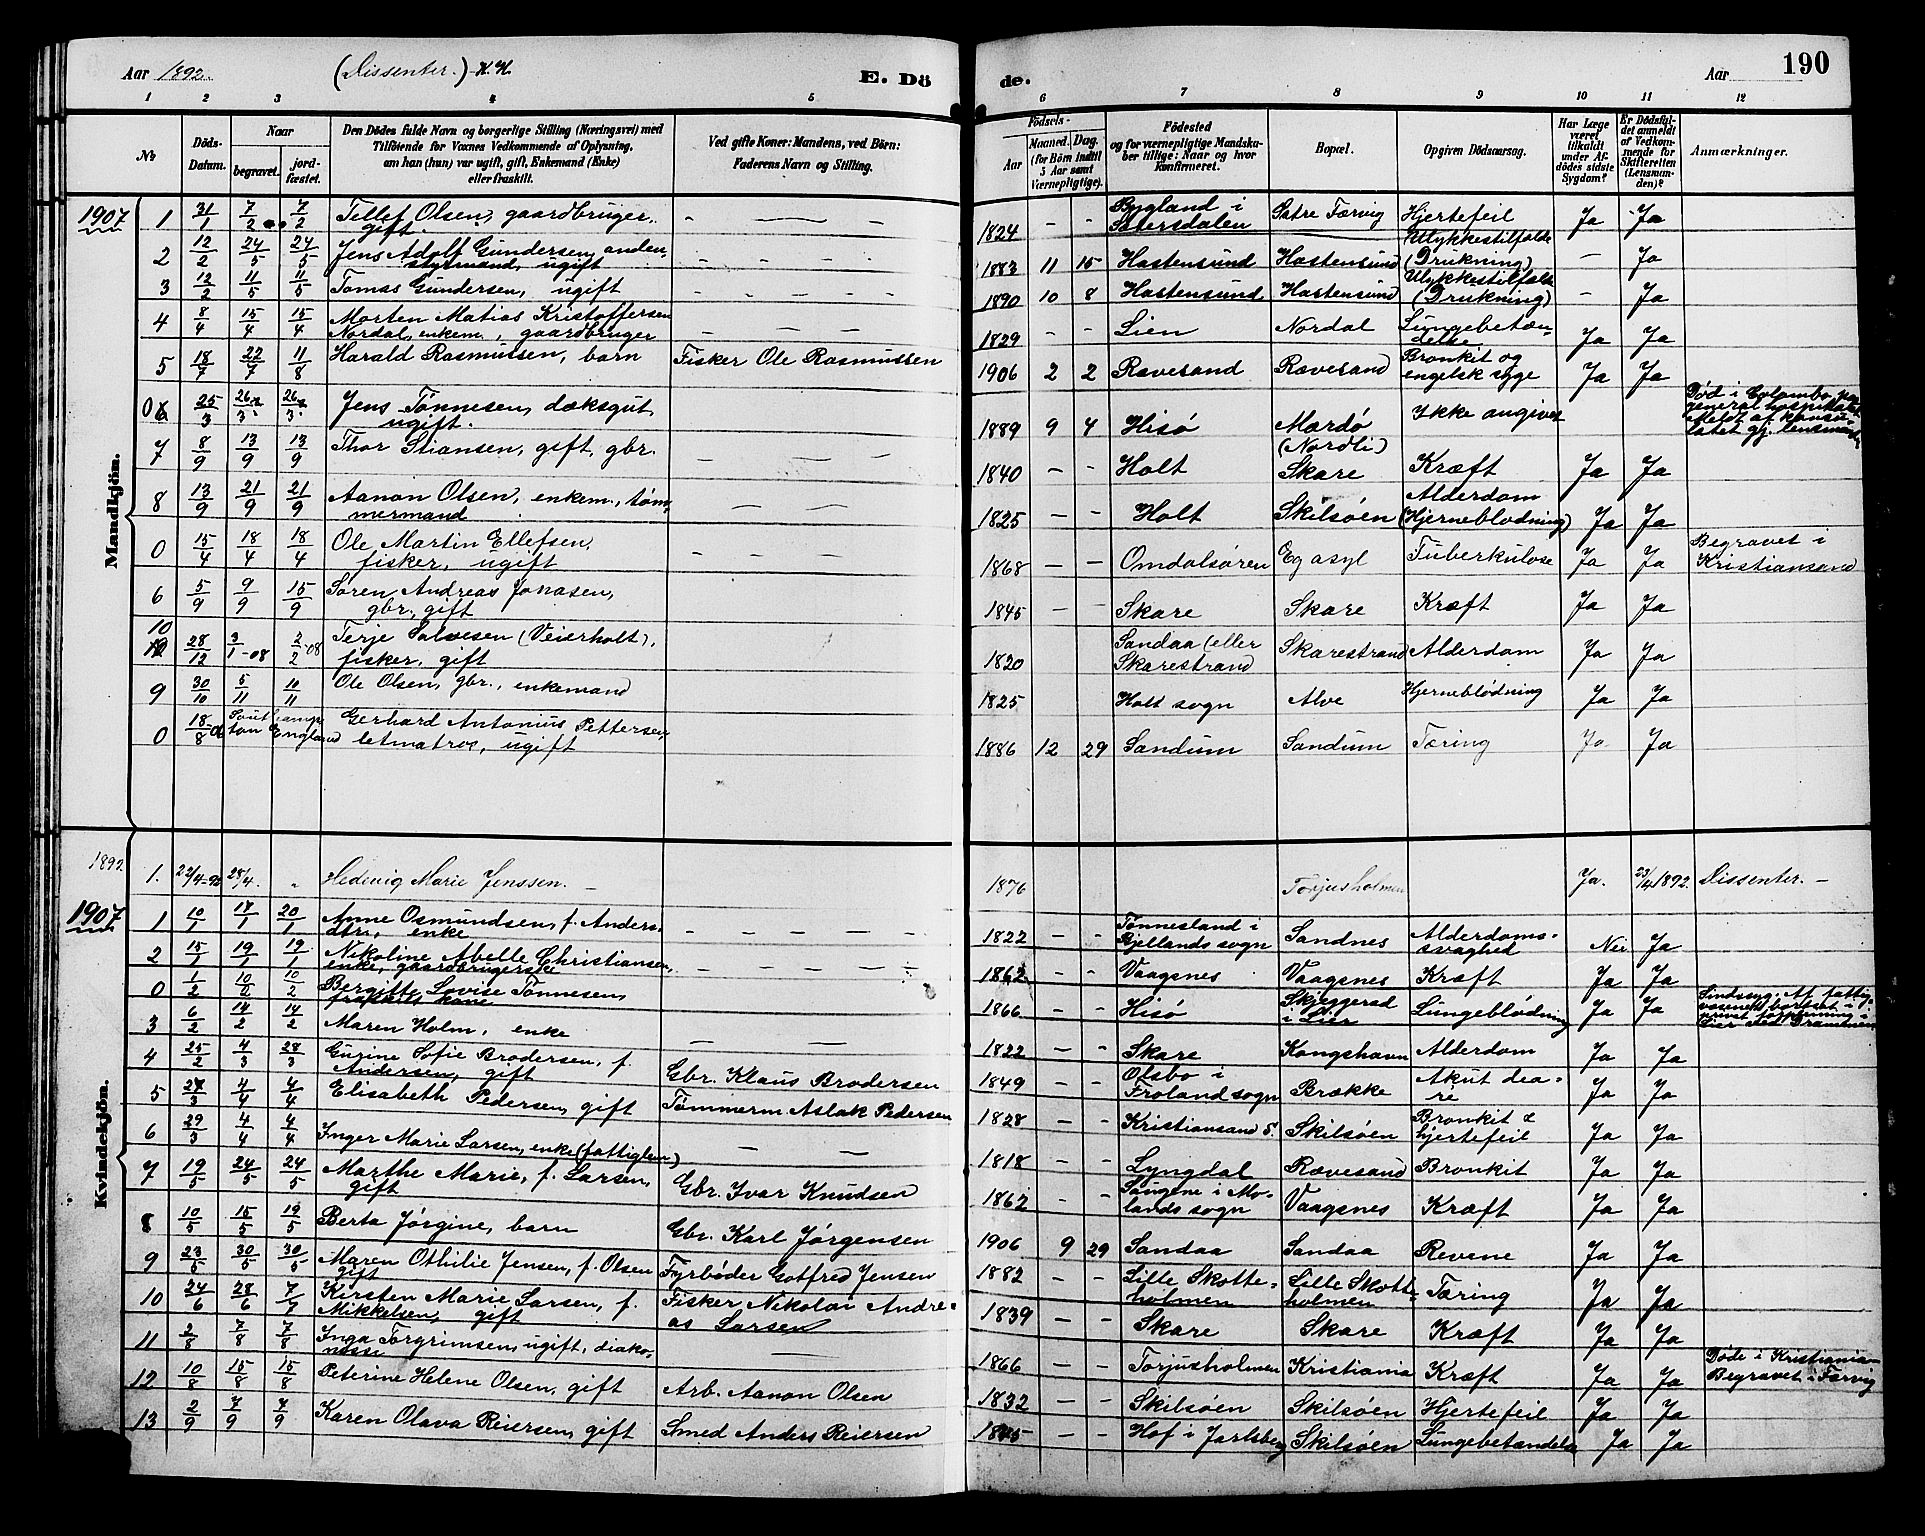 Aar 1892. (Dissenter.) K.K. E. Dö de. Aar 190
1 2 3 4 5 6 7 8 9 10 11 12
№
Döds-Datum.
Naar
begravet. jordfæstet.
Den Dödes fulde Navn og borgerlige Stilling (Næringsvei) med
Tilföiende for Voxnes Vedkommende af Oplysning,
om han (hun) var ugift, gift, Enkemand (Enke)
eller fraskilt.
Ved gifte Koner: Mandens, ved Börn:
Faderens Navn og Stilling.
Födsels-
Aar Maaned. Dag.
(for Börn indtil
5 Aar samt
Værnepligtige).
Födested
og for værnepligtige Mandska-
ber tillige: Naar og hvor
konfirmeret.
Bopæl.
Opgiven Dödsaarsag.
Har Læge
været
tilkaldt
under Af-
dödes sidste
Sygdom?
Er Dödsfal-
det anmeldt
af Vedkom-
mende for
Skifteretten
(Lensman-
den)?
Anmærkninger.
Mandkjön.
1907 1 31/1 7/2 7/2 Tellef Olsen, gaardbruger, gift. - — - 1824 - - Bygland i Sætersdalen Sætre Færvig Hjertefeil Ja Ja
2 12/2 24/5 24/5 Jens Adolf Gundersen, anden- styrmand, ugift - - - - 1883 11 15 Hastensund Hastensund Ulykkestilfælde (Drukning) - Ja
3 12/2 11/5 11/5 Tomas Gundersen, ugift - - - - 1890 10 8 Hastensund Hastensund Ulykkestilfælde (Drukning) - Ja
4 8/4 15/4 15/4 Morten Matias Kristoffersen Nordal, enkem., gaardbruger - - - - 1829 - - Lien Nordal Lungebetæn- delse Ja Ja
5 18/7 22/7 11/8 Harald Rasmussen, barn Fisker Ole Rasmussen 1906 2 2 Rævesand Rævesand Bronkit og engelsk syge Ja Ja
0 25/3 26/3 26/3 Jens Tönnesen, dæksgut, ugift. 1889 9 4 Hisö Mærdö (Nordli) Ikke angivet Död i Colombo, general hospitalet. Meldt af konsu- latet gj. lensmanden
7 8/9 13/9 13/9 Thor Stiansen, gift, gbr. - - - 1840 - - Holt Skare Kræft Ja Ja
8 13/9 21/9 21/9 Aanon Olsen, enkem., töm- mermand - - - 1825 - - Holt Skilsöen Alderdom (Hjerneblödning) Ja Ja
0 15/4 18/4 18/4 Ole Martin Ellefsen, fisker, ugift - - - - 1868 - - Omdalsören Eg asyl Tuberkulose Ja Ja Begravet i Kristiansand
6 5/9 9/9 15/9 Sören Andreas Jonasen, gbr., gift 1845 - - Skare Skare Kræft Ja Ja
10 28/12 3/1-08 2/2-08 Terje Salvesen (Veierholt), fisker, gift 1820 Sandaa (eller Skarestrand Skarestrand Alderdom Ja Ja
9 30/10 5/11 10/11 Ole Olsen, gbr., enkemand 1825 Holt sogn Alve Hjerneblödning Ja Ja
0 18/8 Southamp- ton England Gerhard Antonius Pettersen, letmatros, ugift 1886 12 29 Sandum Sandum Tæring Ja Ja
Kvindekjön.
1892. 1. 22/4-92 28/4. „ Hedevig Marie Jenssen. - 1876 Torjusholmen Ja. 23/4 1892. Dissenter. -
1907 1 10/1 17/1 20/1 Anne Osmundsen, f. Anders- dtr., enke - - - - 1822 - - Tönnesland i Bjellands sogn Sandnes Alderdoms- svaghed Nei Ja
2 15/1 19/1 19/1 Nikoline Abelle Christiansen, enke, gaardbrugerske - - - - 1862 - - Vaagsnes Vaagsnes Kræft Ja Ja
0 1/2 10/2 10/2 Bergitte Lovise Tönnesen, fraskilt kone 1866 - - Hisö Skjeggerud i Lier Lungeblödning Ja Ja
3 6/2 14/2 14/2 Maren Holm, enke — — 1822 - - Skare Kongshavn Alderdom Ja Ja
4 25/2 4/3 28/3 Gurine Sofie Brodersen, f. Andersen, gift Gbr. Klaus Brodersen 1849 - - Olsbo i Froland sogn Brække Akut dea- re Ja Ja
5 27/3 4/4 4/4 Elisabeth Pedersen, gift Tömmerm Aslak Pedersen 1828 - - Kristiansand S. Skilsöen Bronkit & hjertefeil Ja Ja
6 29/3 4/4 4/4 Inger Marie Larsen, enke (fattiglem) - - 1818 - - Lyngdal Rævesand Bronkit Ja Ja
7 19/5 24/5 24/5 Marthe Marie, f. Larsen, gift Gbr. Ivar Knudsen 1862 - - Saugene i Mo- lands sogn Vaagsnes Kræft Ja Ja
8 10/5 15/5 19/5 Berta Jörgine, barn Gbr. Karl Jörgensen 1906 9 29 Sandaa Sandaa Revene Ja Ja
9 23/5 30/5 30/5 Maren Othilie Jensen, f. Olsen gift Fyrböder Gotfred Jensen 1882 - - Lille Skotte- holmen Lille Skott- holmen Tæring Ja Ja
10 24/6 28/6 7/7 Kirsten Marie Larsen, f. Mikkelsen, gift Fisker Nikolai Andre- as Larsen 1839 Skare Skare Kræft Ja Ja
11 2/8 7/8 7/8 Inga Torgrimsen, ugift, diako- nesse 1866 - - Torjusholmen Kristiania Kræft Ja Ja Döde i Kristiania - Begravet i Færvig
12 10/8 15/8 15/8 Peterine Helene Olsen, gift Arb. Aanon Olsen 1832 - - Skilsöen Skilsöen Hjertefeil Ja Ja
13 2/9 7/9 7/9 Karen Olava Reiersen, gift Smed Anders Reiersen - - Hof i Jarlsberg Skilsöen Lungebetændelse Ja Ja